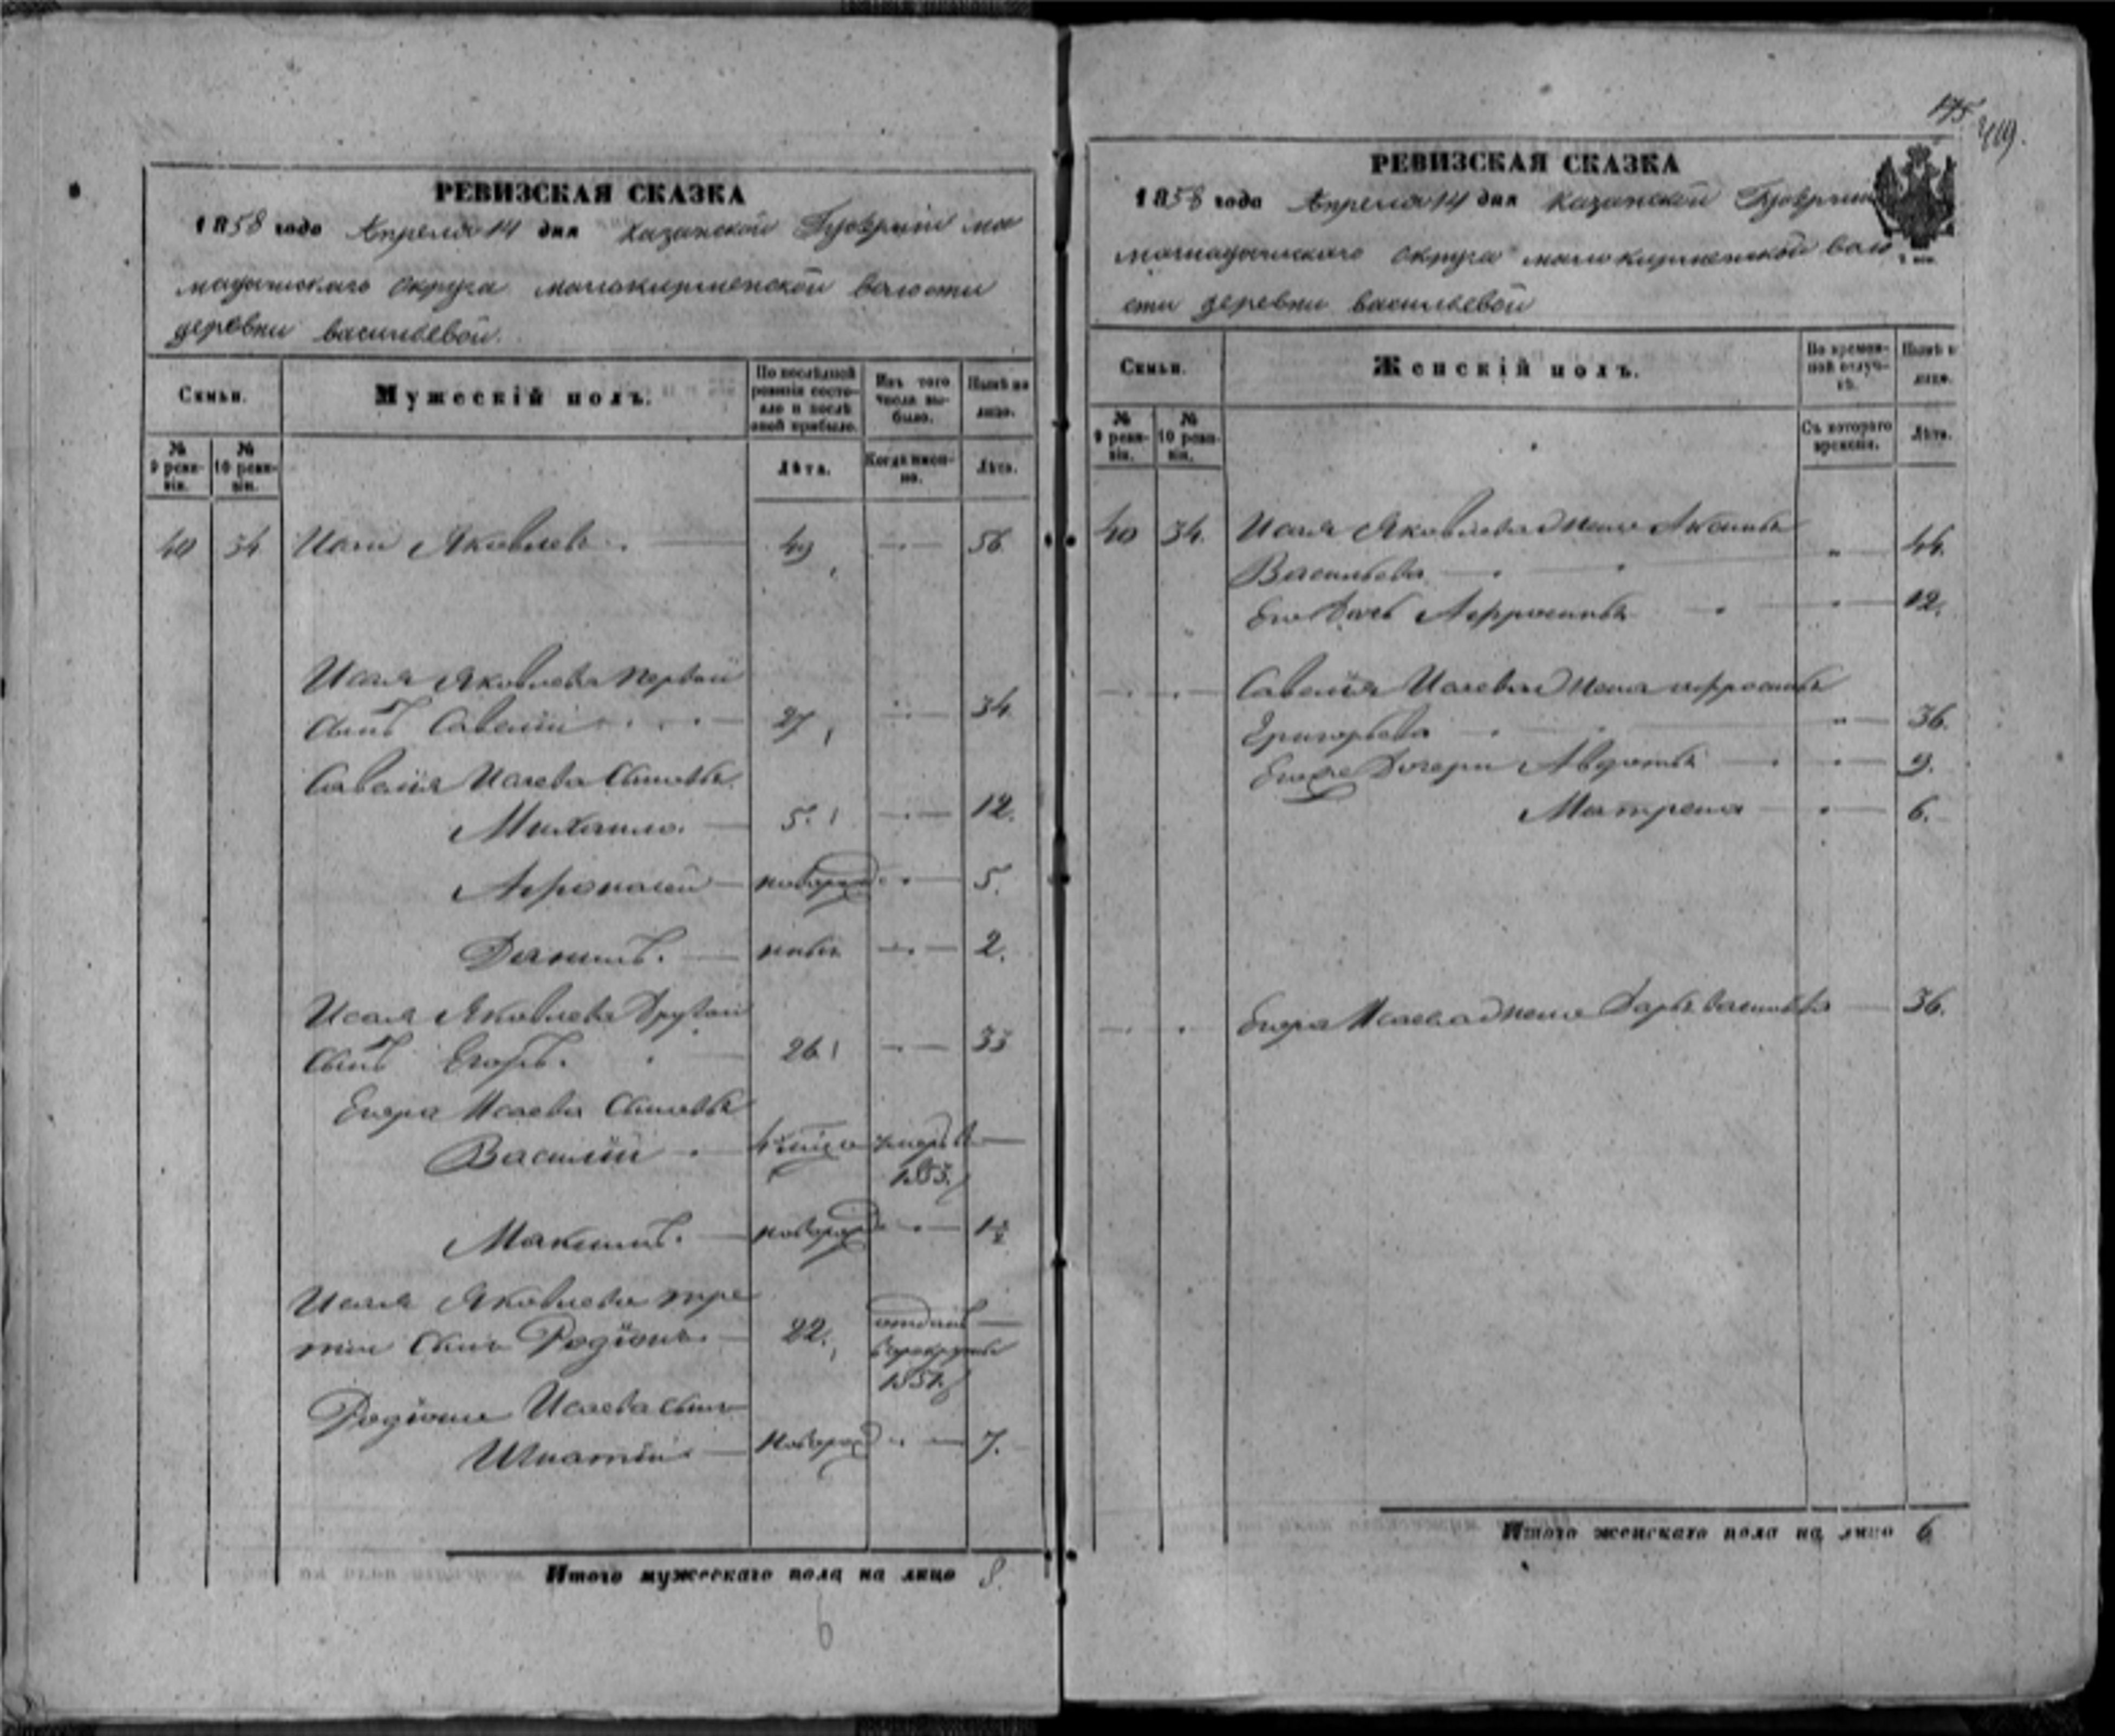 РЕВИЗСКАЯ СКАЗКА
1858 года Апреля 14 дня Казанской Губернии ма
мадышскаго Округа малокирменской волости
деревни васильевой.
Семьи.
Мужескій полъ.
По послѣдней ревизіи состояло и послѣ оной прибыло.
Изъ того числа выбыло.
Нынѣ на лицо.
№ 9 ревизіи.
№ 10 ревизіи.
Лѣта.
Когда именно.
Лѣта.
40 34 Исай Яковлевъ. 49 56
Исая Яковлева первой
сынъ Савелій 27 34
Савелія Исаева сыновья
Михайло. 5. 12.
Афонасей новорожд 5.
Данилъ. новъ 2.
Исая Яковлева другой
сынъ Егоръ. 26 33
Егора Исаева сыновья
Василій умеръ в
1853.
Максимъ. новорожд 1½
Исая Яковлева тре
тій сынъ Родіонъ 22. отданъ
в рекруты
1851
Родіона Исаева сынъ
Игнатій новорожд 7.
Итого мужескаго пола на лицо 8.
6
175
419.
РЕВИЗСКАЯ СКАЗКА
1858 года Апреля 14 дня Казанской Губерніи
мамадышскаго округа малокирменской воло
сти деревни васильевой
Семьи.
Женскій полъ.
Во временной отлучкѣ.
Нынѣ на лицо.
№ 9 ревизіи.
№ 10 ревизіи.
Съ котораго времени.
Лѣта.
40 34. Исая Яковлева жена
Васильева 44.
Его дочь Афросинья 12.
Савелія Исаева жена
Григорьева 36.
Его же дочери Авдотья 9.
Матрена 6.
Егора Исаева жена Дарья Васильева 36.
Итого женскаго пола на лицо 6